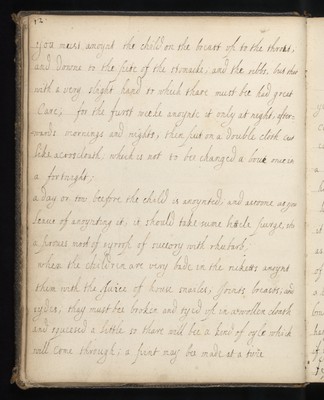 12
you must anoynt the child on the breast up to the throat,
and downe to the pitt of the stomacke, and the ribbs, but
with a very slight hand to which thare must bee had great
Care, for the furst weeke anoynt it only at night, after-
wards mornings and nights, then put on a double cloth cut
like a crosecloath, which is not to bee changed a bout once in
a fortnaght;
a day or too before the child is anoynted, and assoone as you
leave of anoynting it, it should take sume littele purge, as
a sirop of succory with rhubarb,
when the children are very bade in the ricketts anoynt
them with the Juice of house snailes, Joynts, breasts, and
sydes, they must bee broken and tyed up in a wollen cloath
and squesed a little so thare will bee a kind of oyle which
will come through; a pint may bee made at a time